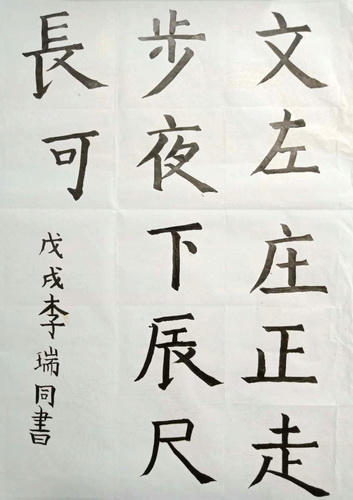 文左庄正走
步夜下辰尺
長可
戊戌李瑞同書